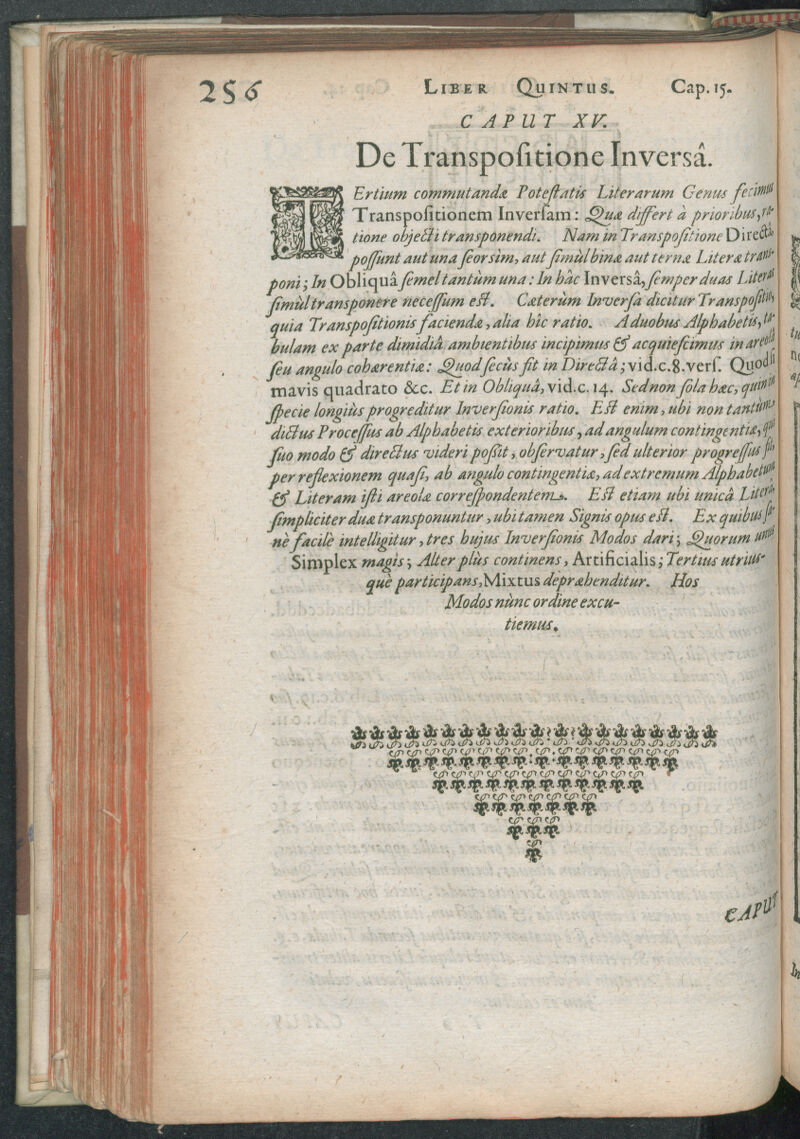 256 LIBER QUINTUS. Cap. 15.
CAPUT XV.
De Transpoſitione Inversâ.
TErtium commutandæ Poteſtatis Literarum Genus fecimus
Transpoſitionem Inverſam: Quæ differt à prioribus, ra-
tione objecti transponendi. Nam in Transpoſitione Directâ
poſſunt aut una ſeorsìm, aut ſimùl binæ aut ternæ Literæ trans-
poni; In Obliquâ ſemel tantùm una: In hâc Inversâ, ſemper duas Literas
ſimùl transponere neceſſum eſt. Cæterùm Inverſa dicitur Transpoſitio,
quia Transpoſitionis faciendæ, alia hîc ratio. A duobus Alphabetis, ta-
bulam ex parte dimidiâ ambientibus incipimus & acquieſcimus in areolâ
ſeu angulo cohærentiæ: Quod ſecùs fit in Directâ; vid.c.8.verſ. Quodſi
mavis quadrato &c. Et in Obliquâ, vid.c.14. Sed non ſola hæc, quin in
ſpecie longiùs progreditur Inverſionis ratio. Eſt enim, ubi non tantùm
dictus Proceſſus ab Alphabetis exterioribus, ad angulum contingentiæ, qui
ſuo modo & directus videri poſſit, obſervatur, ſed ulterior progreſſus fit
per reflexionem quaſi, ab angulo contingentiæ, ad extremum Alphabetum
& Literam iſti areolæ correſpondentem. Eſt etiam ubi unicâ Literâ
ſimpliciter duæ transponuntur, ubi tamen Signis opus eſt. Ex quibus ſa-
nè facilè intelligitur, tres hujus Inverſionis Modos dari; Quorum unus
Simplex magis; Alter plùs continens, Artificialis; Tertius utrius-
què participans, Mixtus depræhenditur. Hos
Modos nùnc ordine excu-
tiemus.
CAPUT